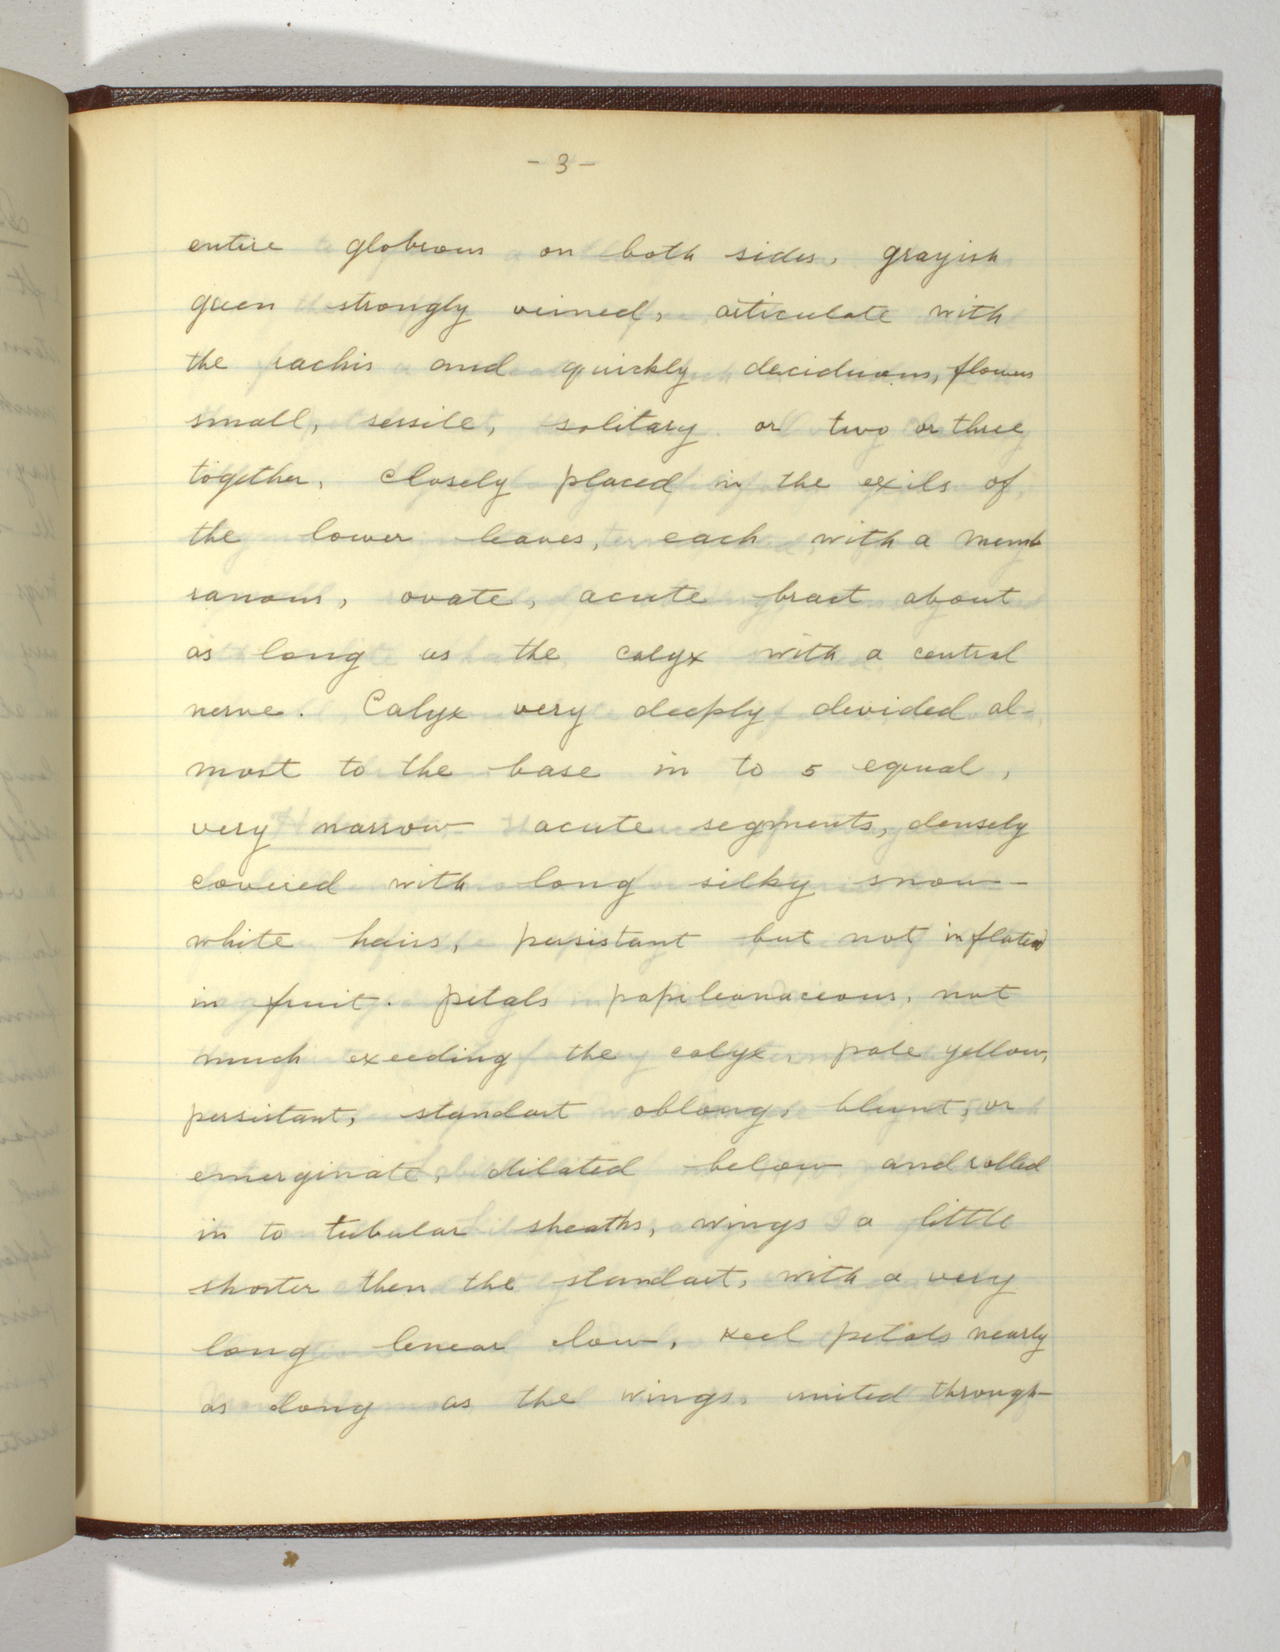 - 3 -
entire globrous on both sides, grayish
green strongly veined, articulate with
the rachis and quickly deciduous, flowers
small, sessile, solitary or two or three
together, closely placed in the exils of
the lower leaves, each with a memb
ranous, ovate, acute bract about
as long as the calyx with a central
nerve. Calyx very deeply devided al-
most to the base in to 5 equal,
very narrow acute segments, densely
covered with long silky snow-
white hairs, persistant but not inflated
in fruit. petals papileonaceous, not
much exeeding the calyx, pale yellow,
persistant, standart oblong, blunt, or
emerginate, dilated below and rolled
in to tubular sheaths, wings a little
shorter then the standart, with a very
long lenear claw, keel petals nearly
as long as the wings, united through-